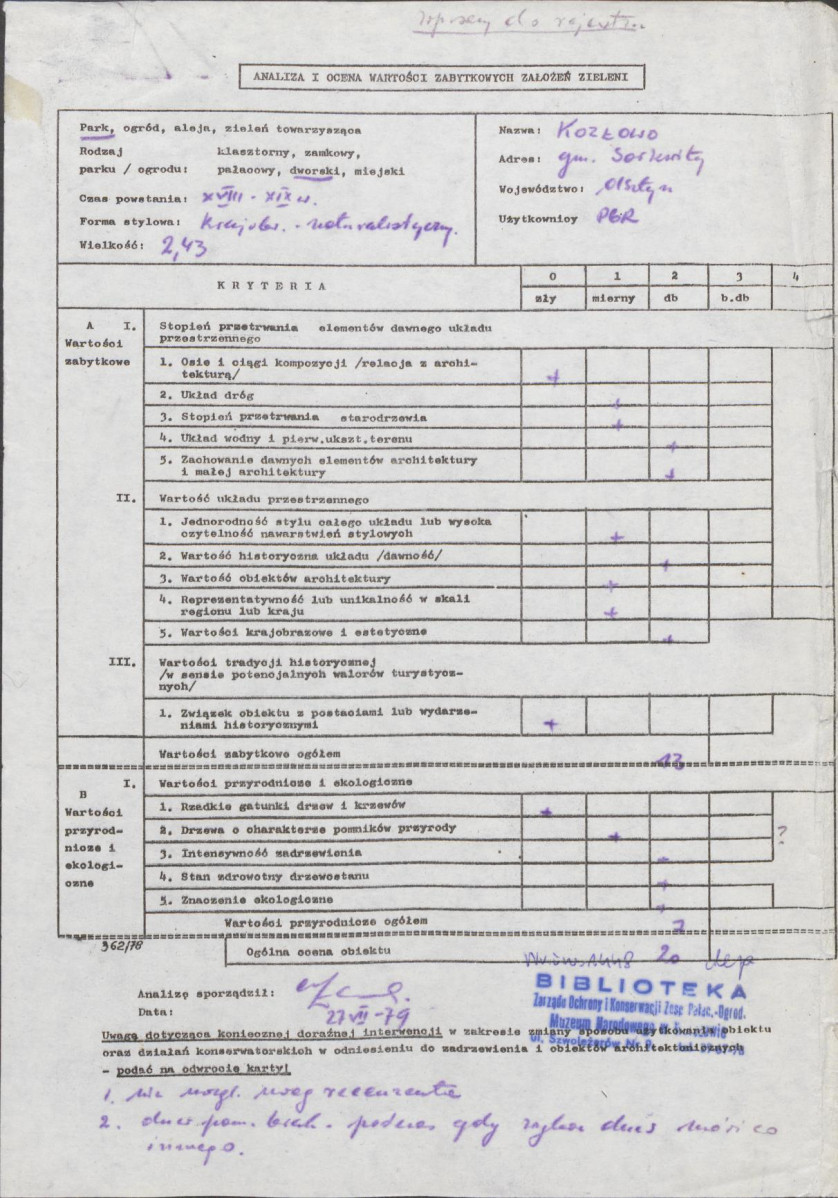 do rejestru
ANALIZA I OCENA WARTOŚCI ZABYTKOWYCH ZAŁOŻEŃ ZIELENI
Park, ogród, aleja, zieleń towarzysząca
Rodzaj klasztorny, zamkowy,
parku / ogrodu: pałacowy, dworski, miejski
Czas powstania: XVIII - XIX w.
Forma stylowa: Krajobr. - naturalistyczny.
Wielkość: 2,43
Nazwa: KOZŁOWO
Adres: gm. Sorkwity
Województwo: Olsztyn
Użytkownicy PGR
KRYTERIA
0 1 2 3 4
zły mierny db b.db
A I. Stopień przetrwania elementów dawnego układu
Wartości przestrzennego
zabytkowe 1. Osie i ciągi kompozycji /relacja z archi-
tekturą/ +
2. Układ dróg +
3. Stopień przetrwania starodrzewia +
4. Układ wodny i pierw.ukszt.terenu +
5. Zachowanie dawnych elementów architektury
i małej architektury +
II. Wartość układu przestrzennego
1. Jednorodność stylu całego układu lub wysoka
czytelność nawarstwień stylowych +
2. Wartość historyczna układu /dawność/ +
3. Wartość obiektów architektury +
4. Reprezentatywność lub unikalność w skali
regionu lub kraju +
5. Wartości krajobrazowe i estetyczne +
III. Wartości tradycji historycznej
/w sensie potencjalnych walorów turystycz-
nych/
1. Związek obiektu z postaciami lub wydarze-
niami historycznymi +
Wartości zabytkowe ogółem 13
B I. Wartości przyrodnicze i ekologiczne
Wartości 1. Rzadkie gatunki drzew i krzewów +
przyrod- 2. Drzewa o charakterze pomników przyrody + ?
nicze i 3. Intensywność zadrzewienia +
ekologi- 4. Stan zdrowotny drzewostanu +
czne 5. Znaczenie ekologiczne +
Wartości przyrodnicze ogółem 7
362/78
Ogólna ocena obiektu 20
Analizę sporządził:
Data: 27 VII -79
BIBLIOTEKA
Zarządu Ochrony i Konserwacji Zesp. Pałac.-Ogrod.
Muzeum Narodowego
ul. Szwoleżerów Nr 9
Uwagę dotyczącą koniecznej doraźnej interwencji w zakresie zmiany sposobu użytkowania obiektu
oraz działań konserwatorskich w odniesieniu do zadrzewienia i obiektów architektonicznych
- podać na odwrocie karty!
1. nie uwzgl. uwag recenzenta
2. podczas gdy
innego.